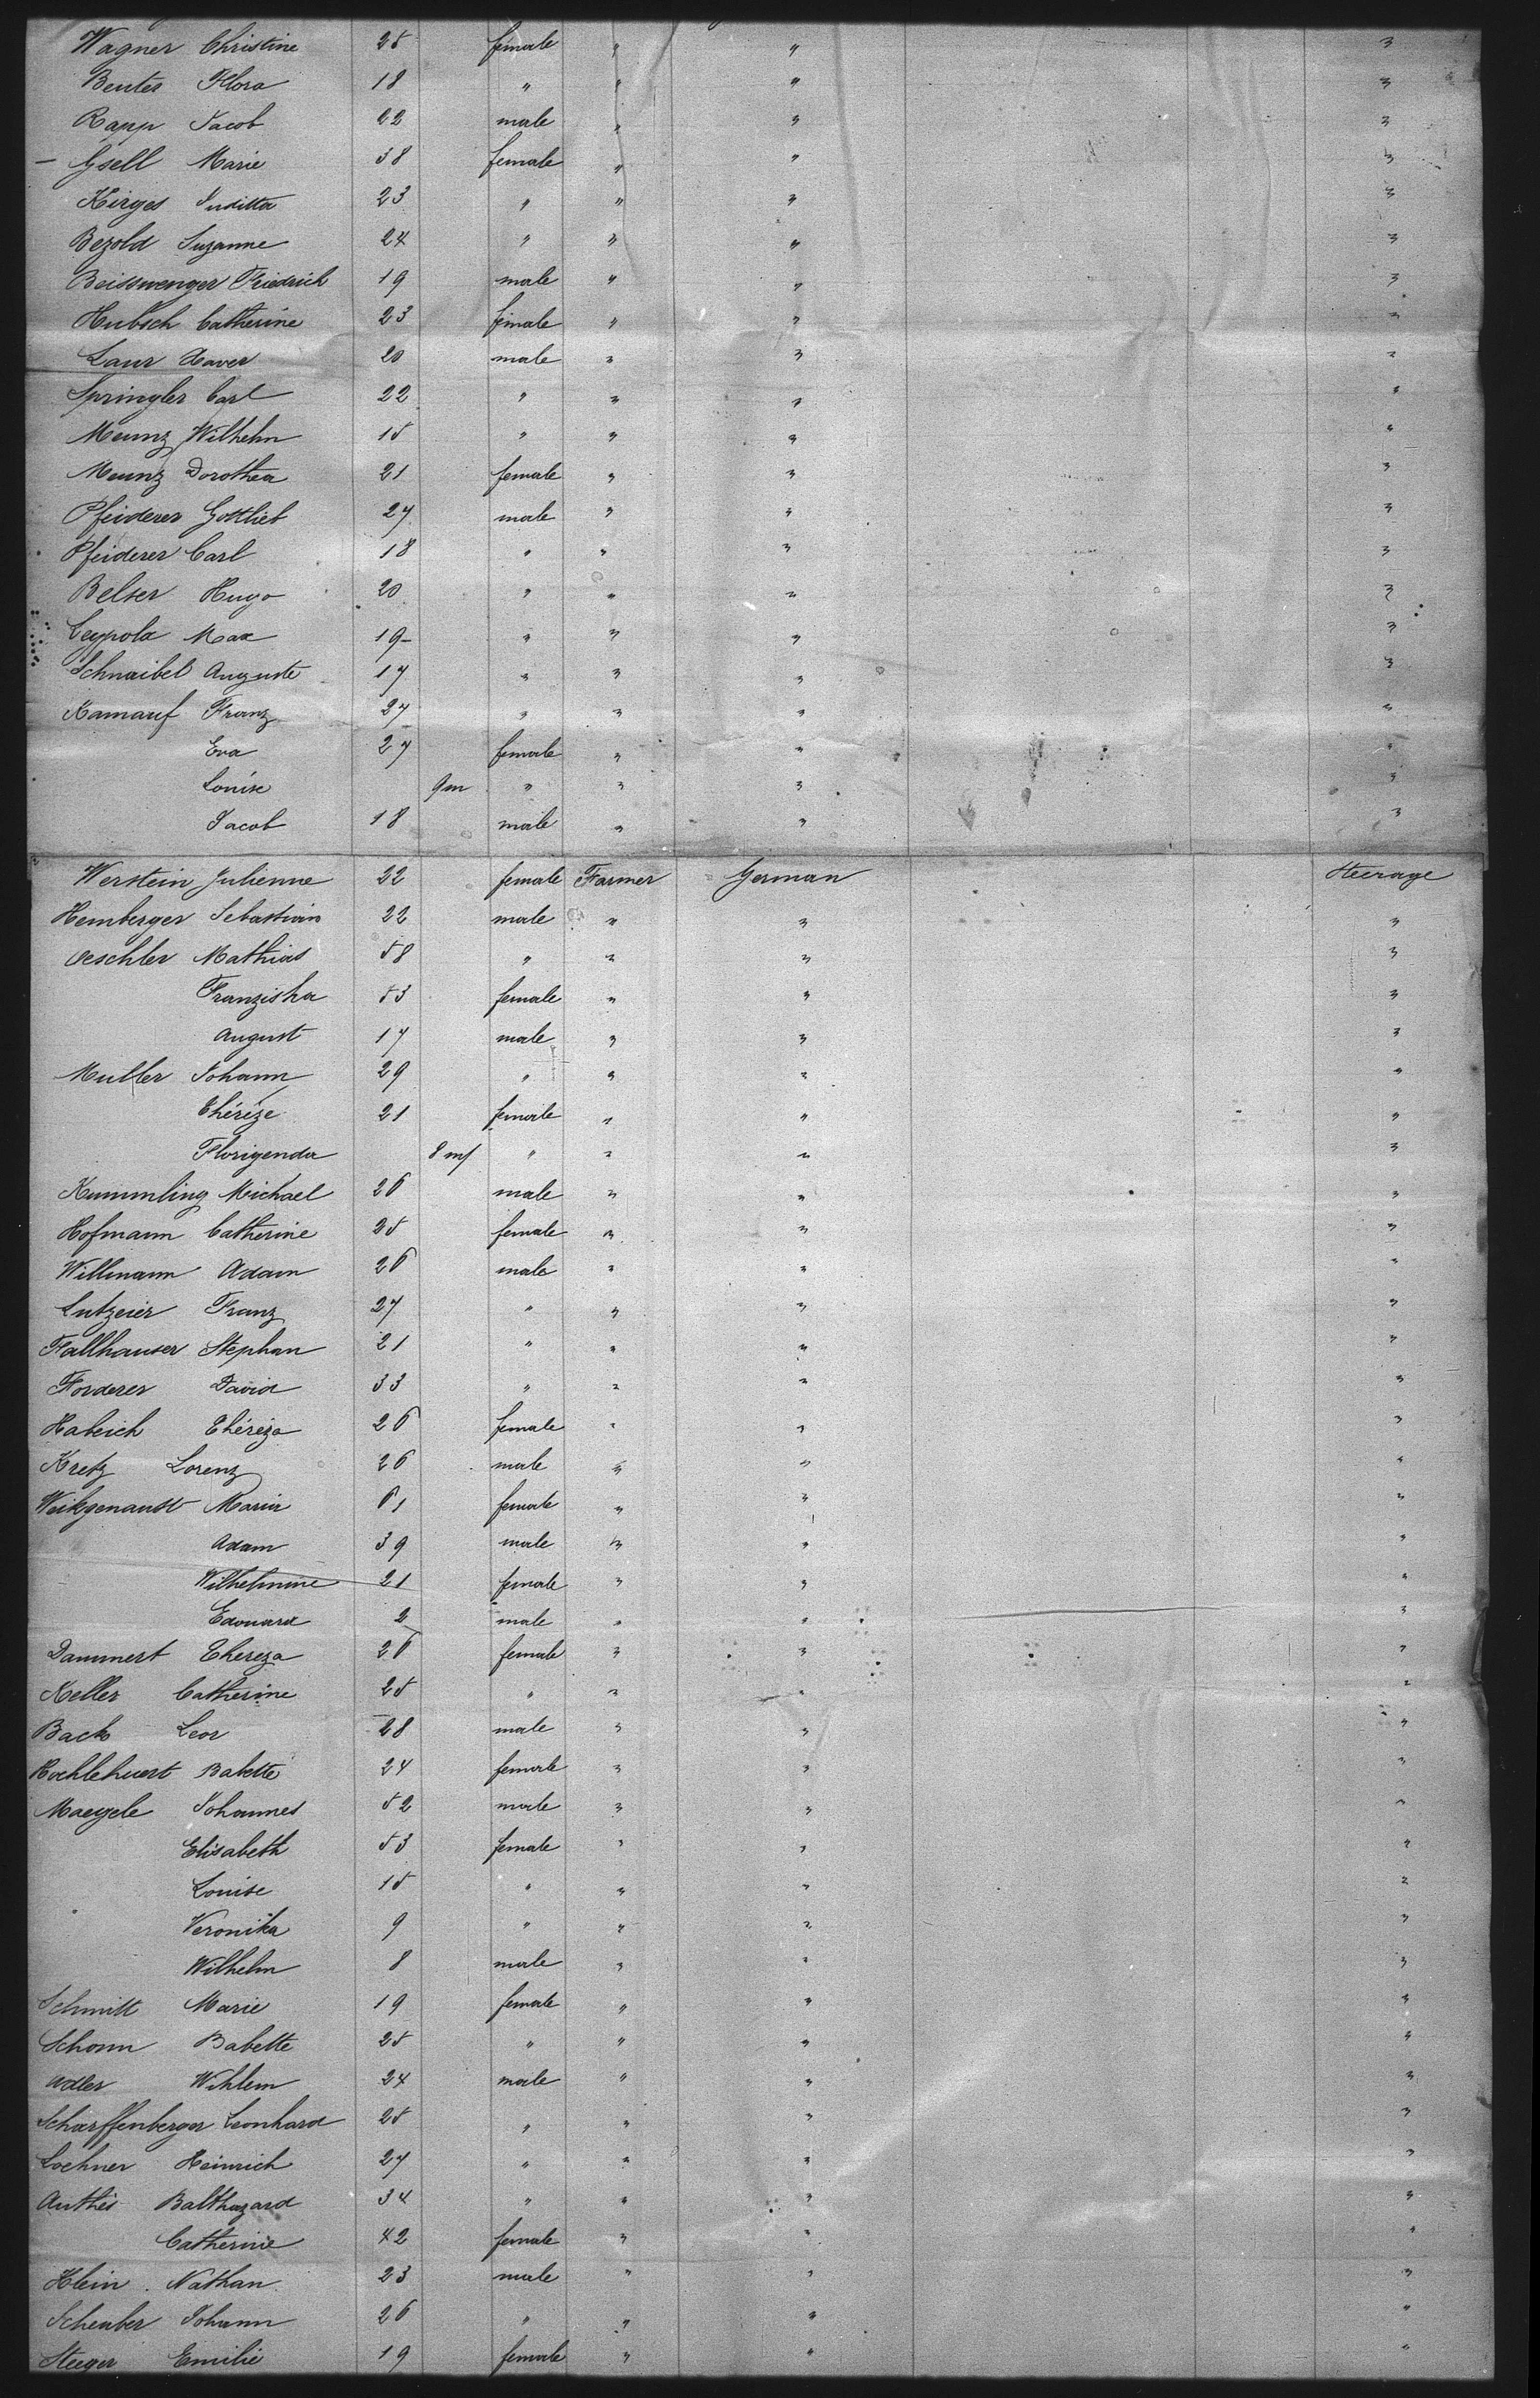 Wagner Christine 25 female " " "
Bentes Flora 18 " " " "
Rapp Jacob 22 male " " "
Gsell Marie 38 female " " "
Kirges Juditta 23 " " " "
Bezold Suzanne 24 " " " "
Beisswenger Friedrich 19 male " " "
Hubsch Catherine 23 female " " "
Laur Xaver 20 male " " "
Springler Carl 22 " " " "
Meunz Wilhelm 15 " " " "
Meunz Dorothea 21 female " " "
Pfeiderer Gottlieb 27 male " " "
Pfeiderer Carl 18 " " " "
Belser Hugo 20 " " " "
Leypold Max 19 " " " "
Schnaibel Auguste 17 " " " "
Kamauf Franz 27 " " " "
Eva 27 female " " "
Louise 9m " " " "
Jacob 18 male " " "
Werstein Julienne 22 female Farmer German Steerage
Hemberger Sebastian 22 male " " "
Oeschler Mathias 58 " " " "
Franziska 53 female " " "
August 17 male " " "
Muller Johann 29 " " " "
Théréze 21 female " " "
Florigenda 8 m " " " "
Kummling Michael 26 male " " "
Hofmann Catherine 25 female " " "
Willmann Adam 26 male " " "
Lutzeier Franz 27 " " " "
Fallhauser Stephan 21 " " " "
Forderer David 33 " " " "
Habich Théréza 26 female " " "
Kretz Lorenz 26 male " " "
Weikgenaust Maria 61 female " " "
Adam 39 male " " "
Wilhelmine 21 female " " "
Edouard 2 male " " "
Dammert Thereza 26 female " " "
Keller Catherine 25 " " " "
Back Leor 28 male " " "
Kochlehuert Babette 24 female " " "
Maegele Johannes 52 male " " "
Elisabeth 53 female " " "
Louise 15 " " " "
Veronika 9 " " " "
Wilhelm 8 male " " "
Schmitt Marie 19 female " " "
Schonn Babette 25 " " " "
Adler Wihlem 24 male " " "
Scharffenberger Leonhard 25 " " " "
Lochner Heinrich 27 " " " "
Anthes Balthazard 34 " " " "
Catherine 42 female " " "
Klein Nathan 23 male " " "
Scheuber Johann 26 " " " "
Steeger Emilie 19 female " " "